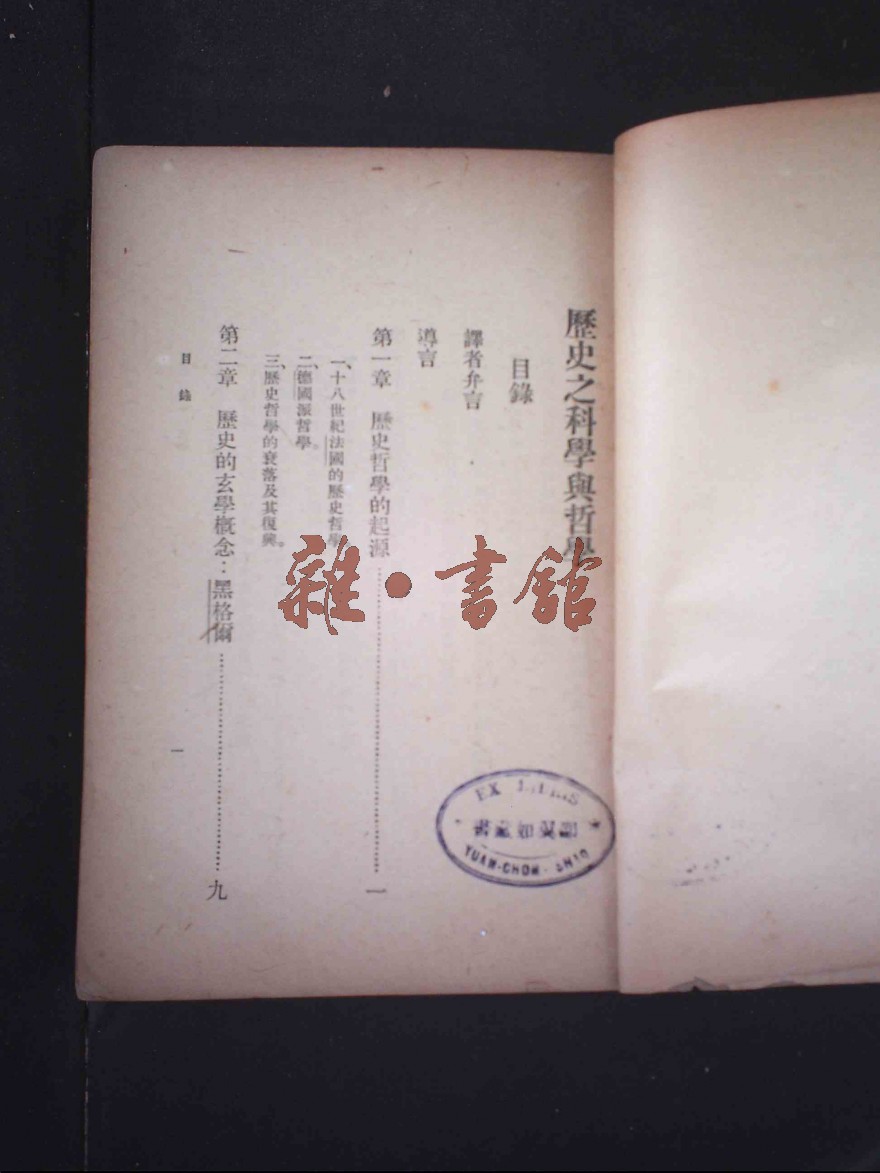 歷史之科學與哲學
目錄
譯者弁言
導言
第一章 歷史哲學的起源……一
一、十八世紀法國的歷史哲學。
二、德國派哲學。
三、歷史哲學的衰落及其復興。
第二章 歷史的玄學概念：黑格爾……九
目錄
一
雜•書館
EX LIBRIS
YUAN-CHOW